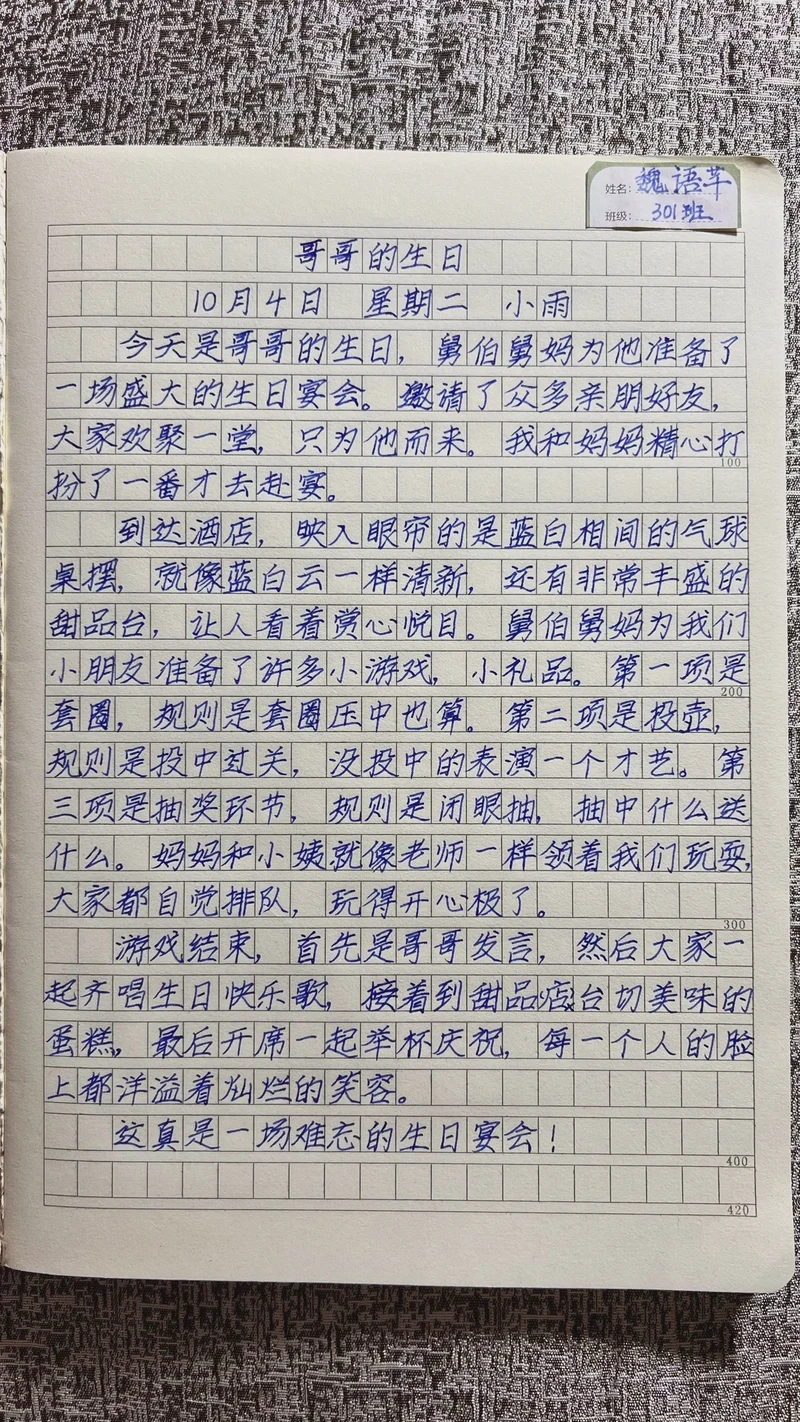 姓名:魏语芊
班级:301班
哥哥的生日
10月4日 星期二 小雨
今天是哥哥的生日,舅伯舅妈为他准备了
一场盛大的生日宴会。邀请了众多亲朋好友,
大家欢聚一堂,只为他而来。我和妈妈精心打
100
扮了一番才去赴宴。
到达酒店,映入眼帘的是蓝白相间的气球
桌摆,就像蓝白云一样清新,还有非常丰盛的
甜品台,让人看着赏心悦目。舅伯舅妈为我们
小朋友准备了许多小游戏,小礼品。第一项是
200
套圈,规则是套圈压中也算。第二项是投壶,
规则是投中过关,没投中的表演一个才艺。第
三项是抽奖环节,规则是闭眼抽,抽中什么送
什么。妈妈和小姨就像老师一样领着我们玩耍,
大家都自觉排队,玩得开心极了。
300
游戏结束,首先是哥哥发言,然后大家一
起齐唱生日快乐歌,接着到甜品台切美味的
蛋糕,最后开席一起举杯庆祝,每一个人的脸
上都洋溢着灿烂的笑容。
这真是一场难忘的生日宴会!
400
420